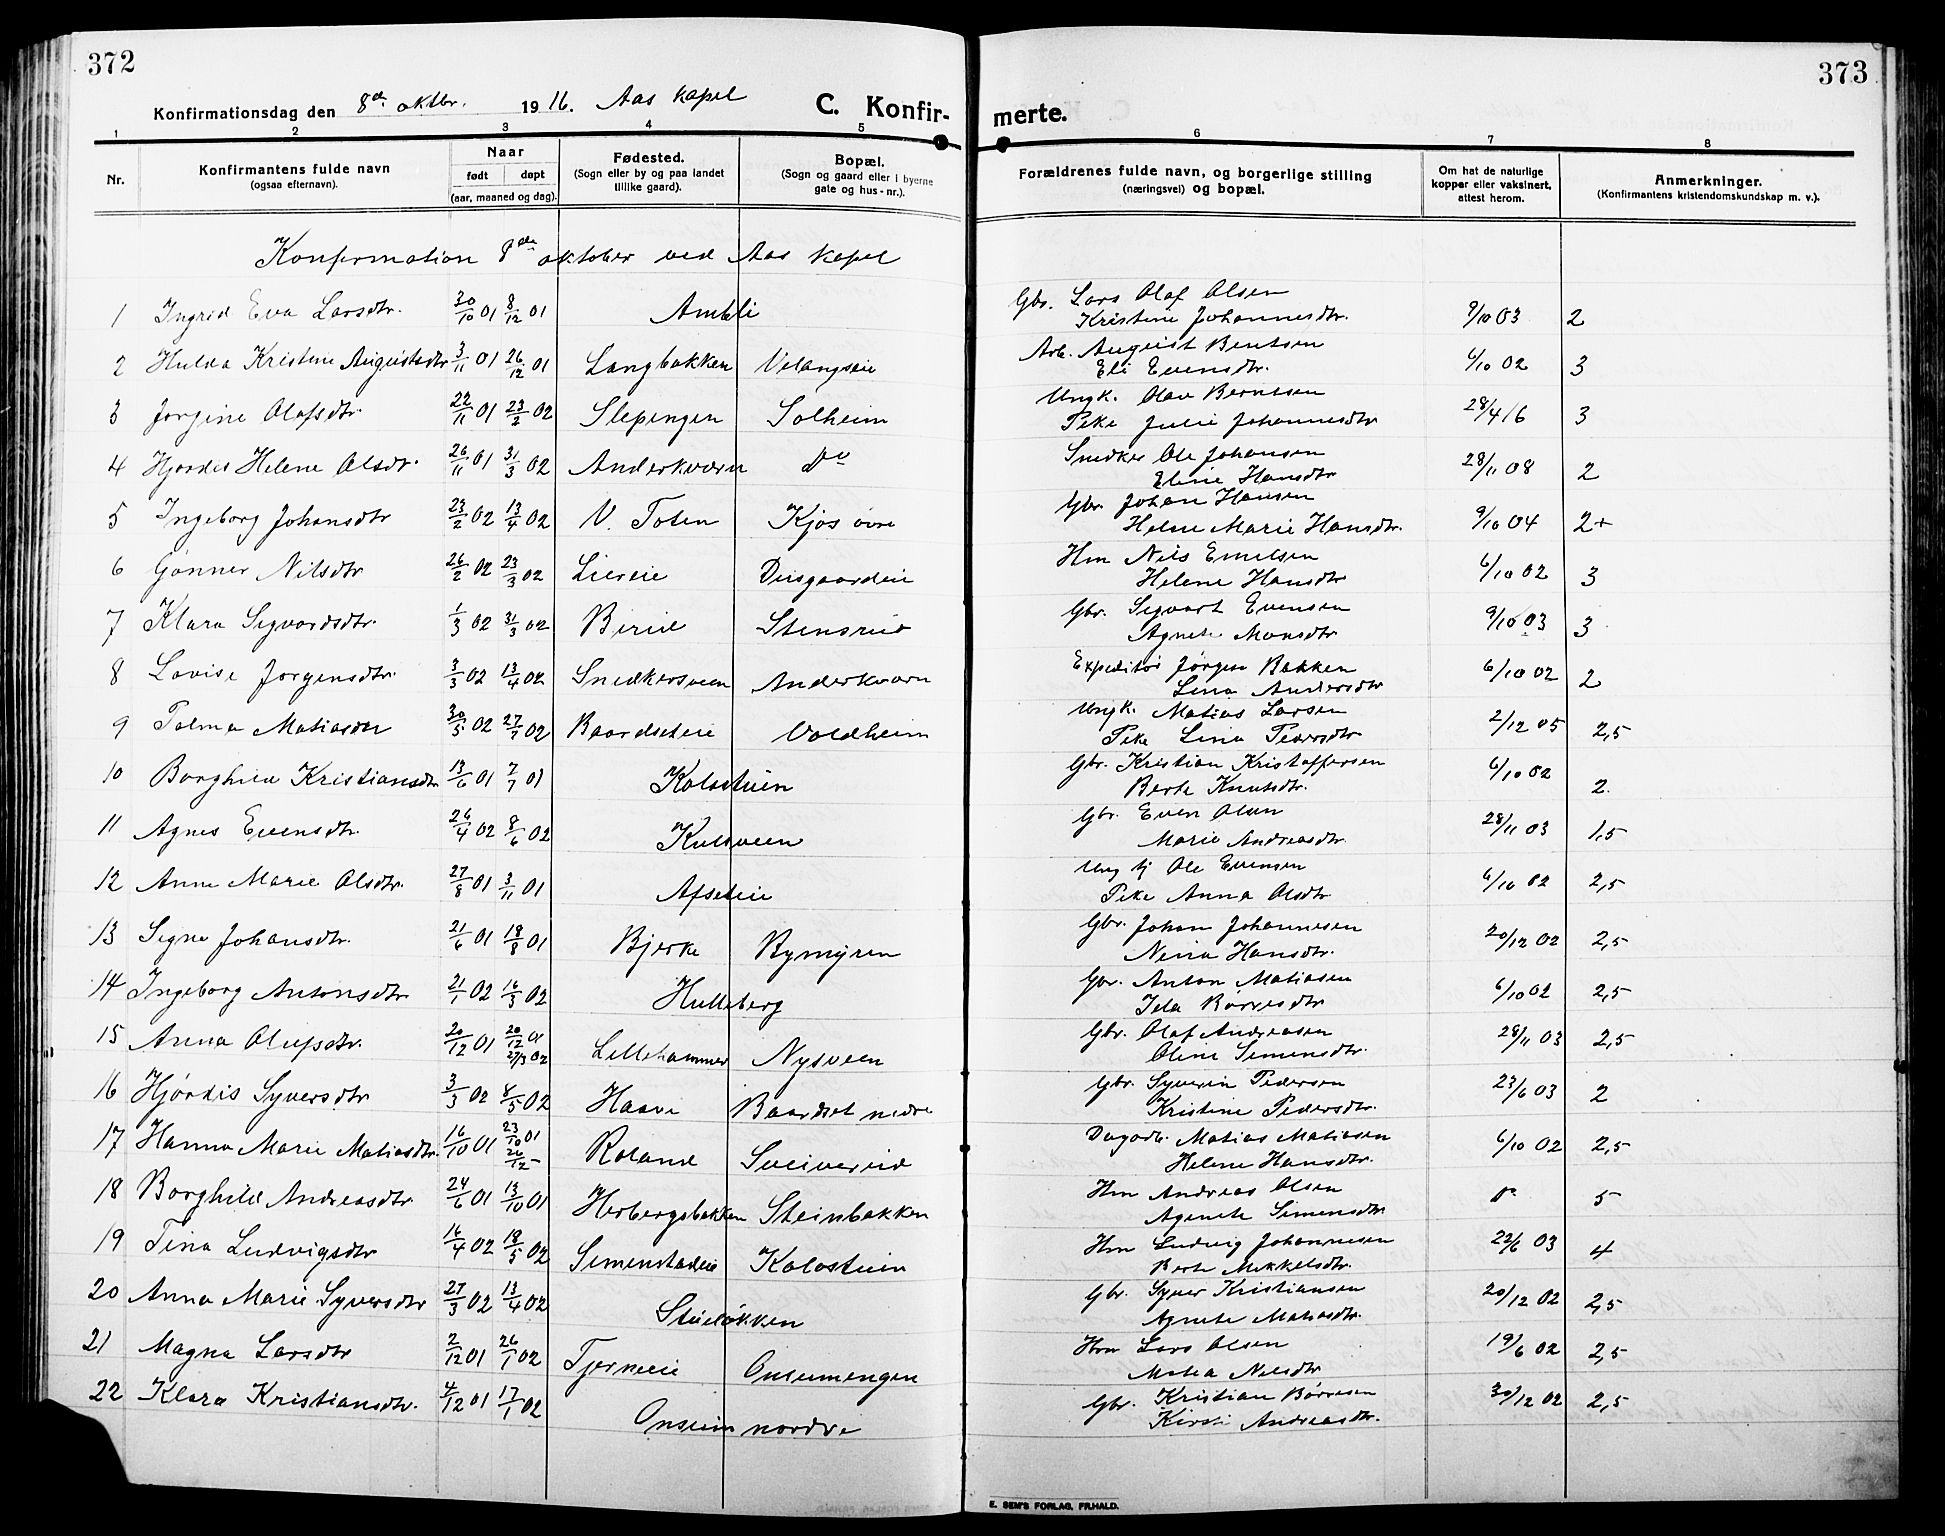 372
373
Konfirmationsdag den 8de oktbr. 1916. Aas kapel
C. Konfir-
merte.
1 2 3 4 5 6 7 8
Nr.
Konfirmantens fulde navn
(ogsaa efternavn).
Naar
født døpt
(aar, maaned og dag).
Fødested.
(Sogn eller by og paa landet
tillike gaard).
Bopæl.
(Sogn og gaard eller i byerne
gate og hus-nr.).
Forældrenes fulde navn, og borgerlige stilling
(næringsvei) og bopæl.
Om hat de naturlige
kopper eller vaksinert,
attest herom.
Anmerkninger.
(Konfirmantens kristendomskundskap m. v.).
Konfirmation 8de oktober ved Aas kapel
1 Ingrid Eva Larsdtr. 30/10 01 8/12 01 Ambli Gbr. Lars Olaf Olsen
Kristine Johannesdtr. 9/10 03 2
2 Hulda Kristine Augustsdtr 3/11 01 26/12 01 Langbakken Arb. August Bentsen
Eli Evensdtr. 6/10 02 3
3 Jørgine Olafsdtr. 22/11 01 23/2 02 Slepengen Solheim Ungk. Olav Berntsen
Pike Julie Johannesdtr 28/4 16 3
4 Hjørdis Helene Olsdtr. 26/11 01 31/3 02 Anderkværn Do Snedker Ole Johansen
Eline Hansdtr 28/11 08 2
5 Ingeborg Johansdtr 23/2 02 13/4 02 V. Toten Kjos øvre Gbr. Johan Hansen
Helene Marie Hansdtr. 9/10 04 2+
6 Gønner Nilsdtr 26/2 02 23/3 02 Liereie Hm Nils Emilsen
Helene Hansdtr 6/10 02 3
7 Klara Sigvardsdtr. 1/3 02 31/3 02 Birid Stensrud Gbr. Sigvart Evensen
Agnete Monsdtr 9/10 03 3
8 Lovise Jørgensdtr. 3/3 02 13/4 02 Snedkersveen Anderkværn Expeditør Jørgen Bakken
Lina Andersdtr 6/10 02 2
9 Tolma Matiasdtr 30/5 02 27/7 02 Baardseteie Voldheim Ungk. Matias Larsen
Pike Lina Pedersdtr 2/12 05 2,5
10 Borghild Kristiansdtr 13/6 01 7/7 01 Kolostuen Gbr. Kristian Kristoffersen
Berte Knutsdtr. 6/10 02 2.
11 Agnes Evensdtr. 26/4 02 8/6 02 Kulsveen Gbr. Even Olsen
Marie Andreasdtr. 28/11 03 1,5
12 Anne Marie Olsdtr. 27/8 01 3/11 01 Afseteie Ungkj Ole Evensen
Pike Anna Olsdtr 6/10 02 2,5
13 Signe Johansdtr. 21/6 01 18/8 01 Bjerke Bymyren Gbr. Johan Johannesen
Nina Hansdtr. 20/12 02 2,5
14 Ingeborg Antonsdtr 21/1 02 16/3 02 Hulleberg Gbr. Anton Matiasen
Ida Børresdtr 6/10 02 2,5
15 Anna Olufsdtr. 20/12 01 20/12 01
27/3 02 Lillehammer Nysveen Gbr. Olaf Andreasen
Oline Simensdtr. 28/11 03 2,5
16 Hjørdis Syversdtr 3/3 02 4/5 02 Haave Baardset nedre Gbr. Syverin Pedersen
Kristine Pedersdtr. 23/6 03 2
17 Hanna Marie Matiasdtr. 16/10 01 23/10 01
26/12 – Roland Sveiverud Dagarb. Matias Matiasen
Helene Hansdtr. 6/10 02 2,5
18 Borghild Andreasdtr 24/6 01 13/10 01 Herbergsbakken Steinbakken Hm Andreas Olsen
Agnete Simensdtr. Do 5
19 Tina Ludvigsdtr 16/4 02 18/5 02 Simenstadeie Kolostuen Hm Ludvig Johannesen
Berte Mikkelsdtr. 22/6 03 4
20 Anna Marie Syversdtr 27/3 02 13/4 02 Stueløkken Gbr. Syver Kristiansen
Agnete Matiasdtr. 20/12 02 2,5
21 Magna Larsdtr 2/12 01 26/1 02 Tjerneeie Onsumengen Hm Lars Olsen
Matea Nilsdtr 19/6 02 2,5
22 Klara Kristiansdtr. 4/12 01 17/1 02 Onsum nordre Gbr. Kristian Børresen
Kirsti Andreasdtr. 30/12 02 2,5
E. SEM'S FORLAG, FR.HALD.